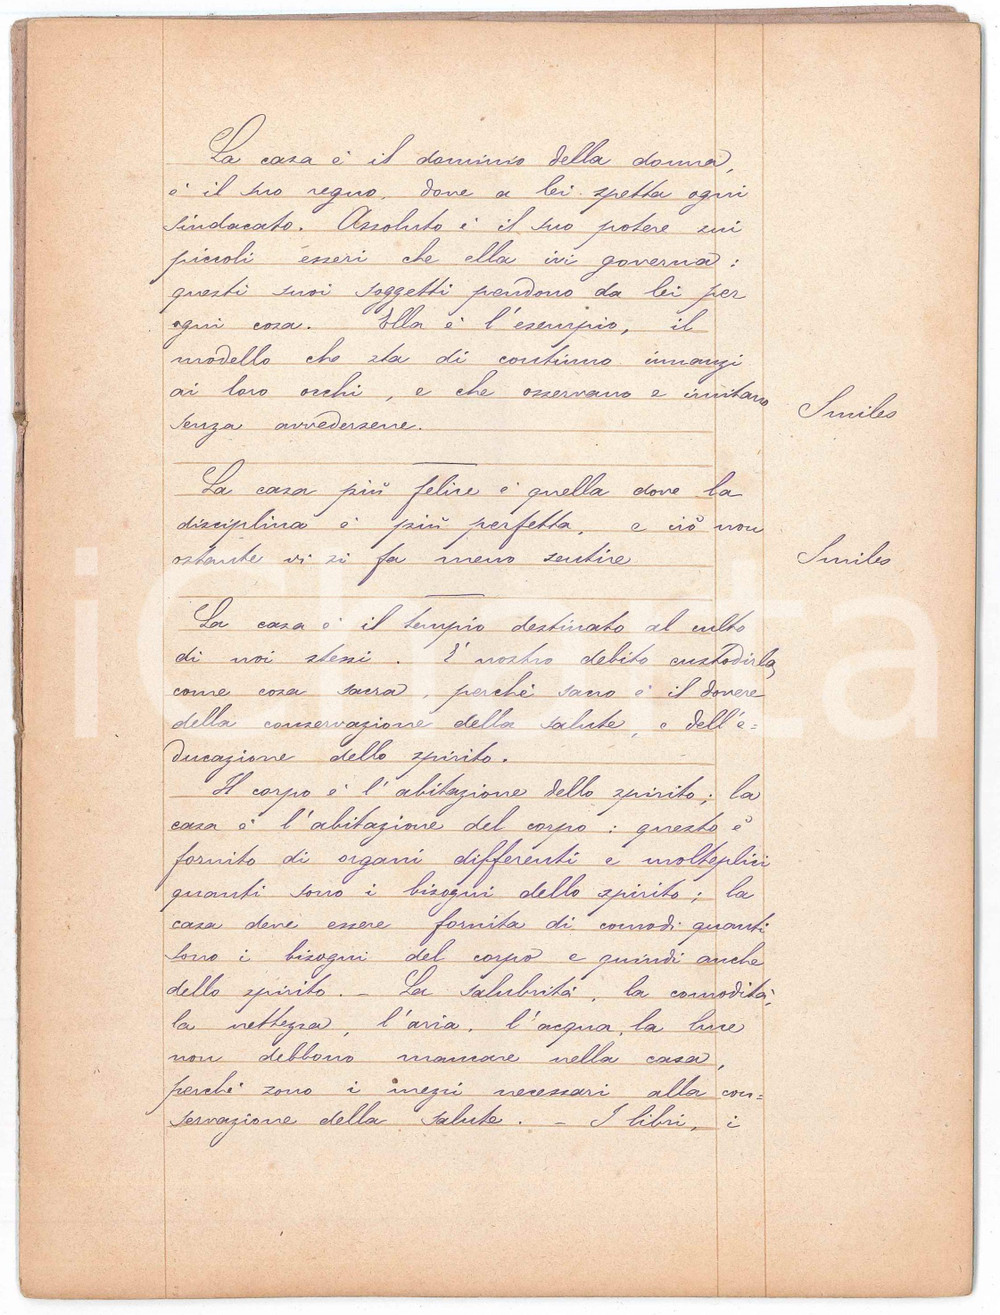 La casa è il dominio della donna,
è il suo regno, dove a lei spetta ogni
sindacato. Assoluto è il suo potere sui
piccoli esseri che ella ivi governa:
questi suoi soggetti pendono da lei per
ogni cosa. Ella è l'esempio, il
modello che sta di continuo innanzi
ai loro occhi, e che osservano e imitano
senza avvedersene.
Smiles
La casa più felice è quella dove la
disciplina è più perfetta, e ciò non
ostante vi si fa meno sentire
Smiles
La casa è il tempio destinato al culto
di noi stessi. È nostro debito custodirla,
come cosa sacra, perchè sacro è il dovere
della conservazione della salute, e dell'e=
ducazione dello spirito.
Il corpo è l'abitazione dello spirito; la
casa è l'abitazione del corpo: questo è
fornito di organi differenti e molteplici
quanti sono i bisogni dello spirito; la
casa deve essere fornita di comodi quanti
sono i bisogni del corpo e quindi anche
dello spirito. – La salubrità, la comodità,
la nettezza, l'aria, l'acqua, la luce
non debbono mancare nella casa,
perchè sono i mezzi necessari alla con=
servazione della salute. – I libri, i
iCharta